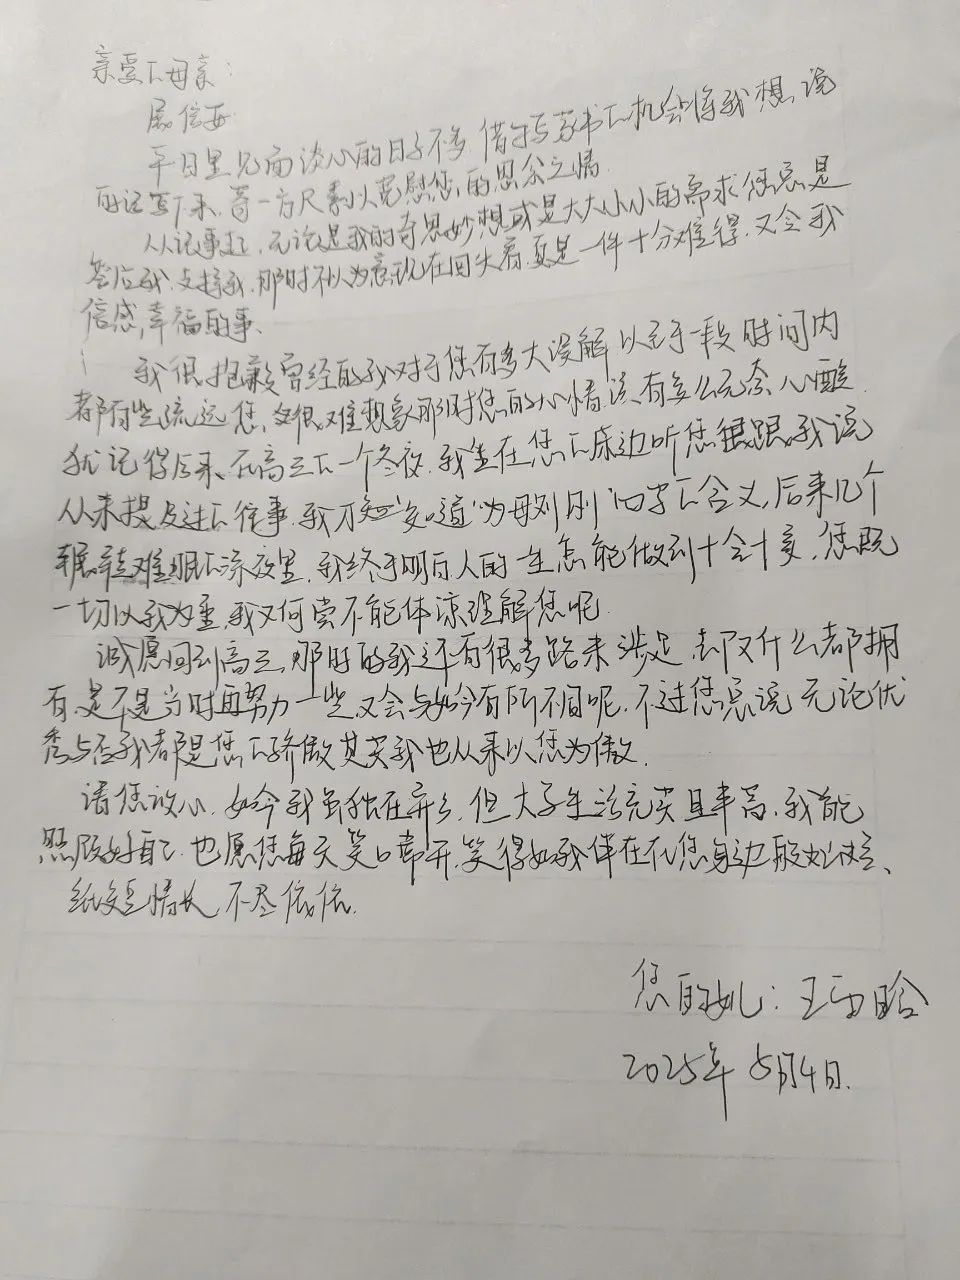 亲爱的母亲：
展信安
平日里见面谈心的日子不多，借由写家书的机会将我想说
的话写下来，寄一方尺素以慰您的思念之情.
从记事起，无论是我的奇思妙想或是大大小小的需求您总是
答应我，支持我，那时不以为意现在回头看，真是一件十分难得，又令我
倍感幸福的事、
我很抱歉曾经的我对于您有多大误解以至于一段时间内
都有些疏远您，很难想象那时您的心情该有多么无奈心酸.
犹记得后来，在高三的一个冬夜，我坐在您的床边听您跟我说
从未提及过的往事，我才知道"为母则刚"四字的含义，后来几个
辗转难眠的深夜里，我终于明白人的一生怎能做到十全十美，您既
一切以我为重，我又何尝不能体谅理解您呢
诚愿回到高三，那时的我还有很多路未涉足，却又什么都拥
有，是不是当时再努力一些又会与如今有所不同呢，不过您总说无论优
秀与否我都是您的骄傲其实我也从来以您为傲.
请您放心，如今我虽独在异乡，但大学生活充实且丰富，我能
照顾好自己，也愿您每天笑口常开，笑得如我伴在您身边般灿烂、
纸短情长，不尽依依.
您的女儿：王雨晗
2025年5月4日.